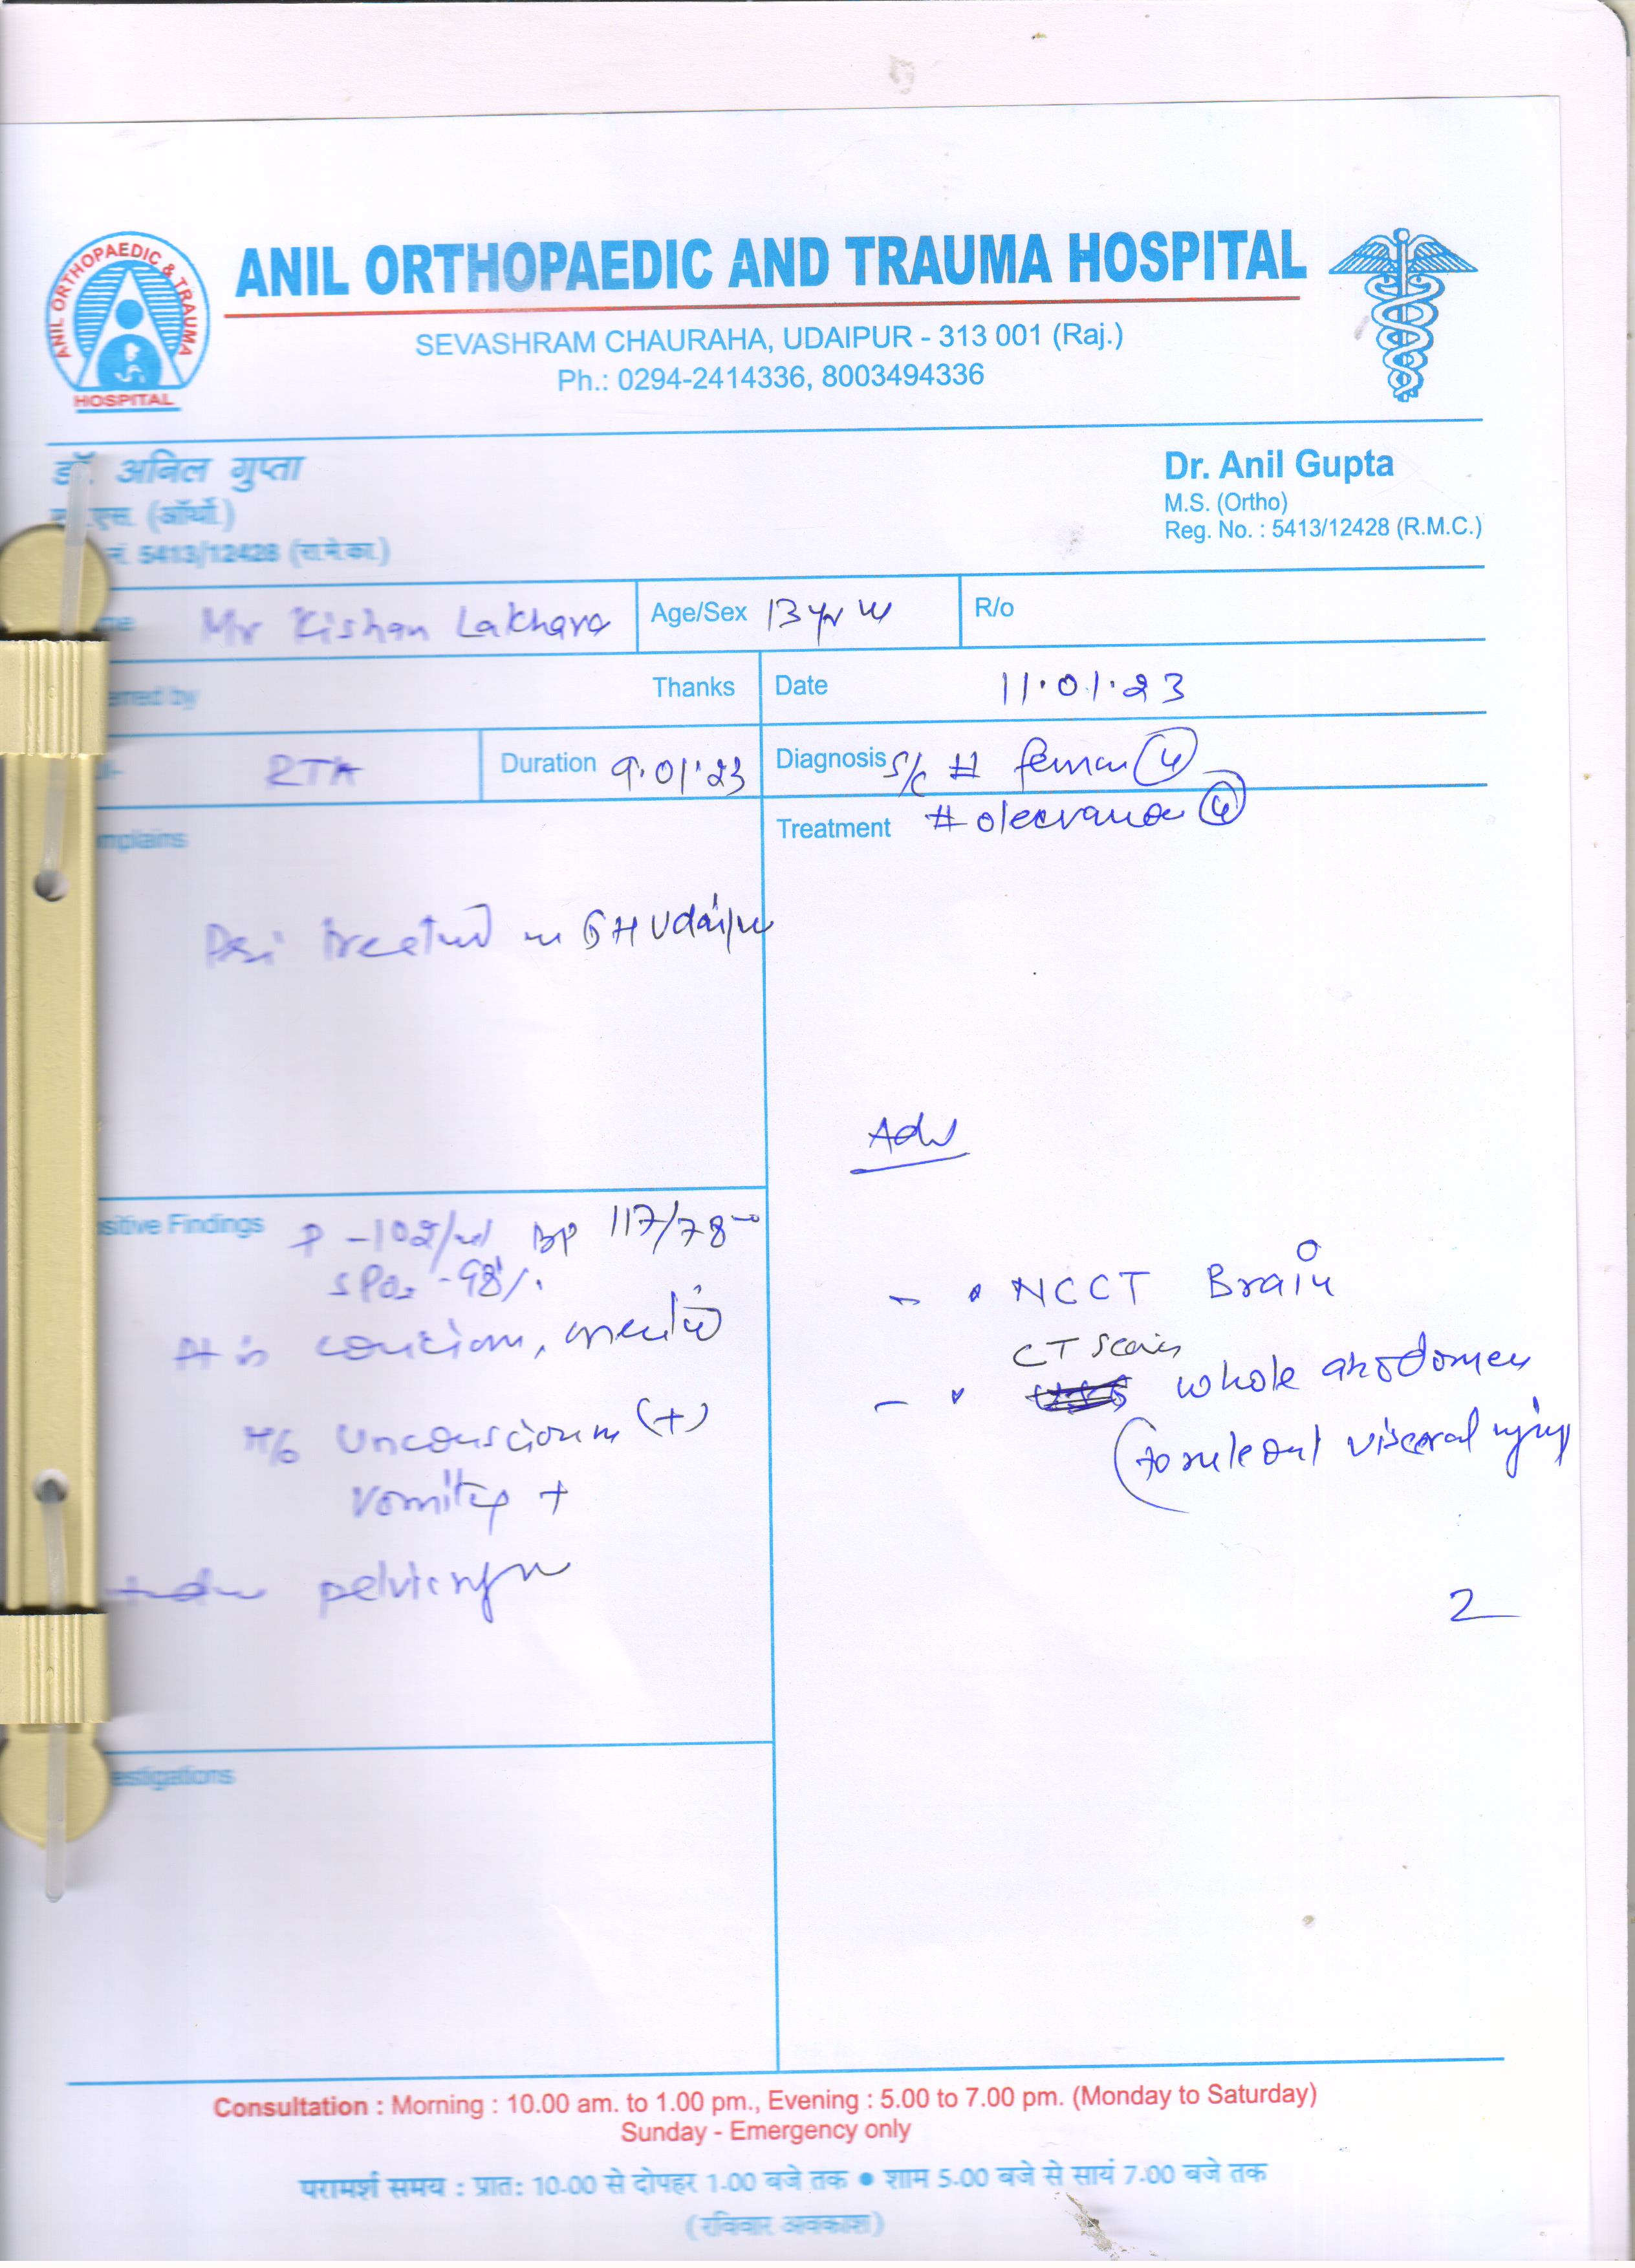 ANIL ORTHOPAEDIC & TRAUMA
HOSPITAL
ANIL ORTHOPAEDIC AND TRAUMA HOSPITAL
SEVASHRAM CHAURAHA, UDAIPUR - 313 001 (Raj.)
Ph.: 0294-2414336, 8003494336
डॉ. अनिल गुप्ता
एस. (ऑर्थो.)
नं. 5413/12428 (रा.मे.का.)
Dr. Anil Gupta
M.S. (Ortho)
Reg. No. : 5413/12428 (R.M.C.)
Mr Kishan Lakhara Age/Sex 13 yr R/o
erred by Thanks Date 11.01.23
RTA Duration 9.01.23 Diagnosis S/C # femur
mplains Treatment # olecranon
treated in GH Udaipur
Adv
sitive Findings P - 102/ BP 117/78
SPO2 - 98%.
Pt is concious, oriented
• NCCT Brain
CT Scan
whole abdomen
H/o Unconscious (+)
(to rule out visceral injury
vomiting +
pelvic
2
estigations
Consultation : Morning : 10.00 am. to 1.00 pm., Evening : 5.00 to 7.00 pm. (Monday to Saturday)
Sunday - Emergency only
परामर्श समय : प्रातः 10.00 से दोपहर 1.00 बजे तक ● शाम 5.00 बजे से सायं 7.00 बजे तक
(रविवार अवकाश)